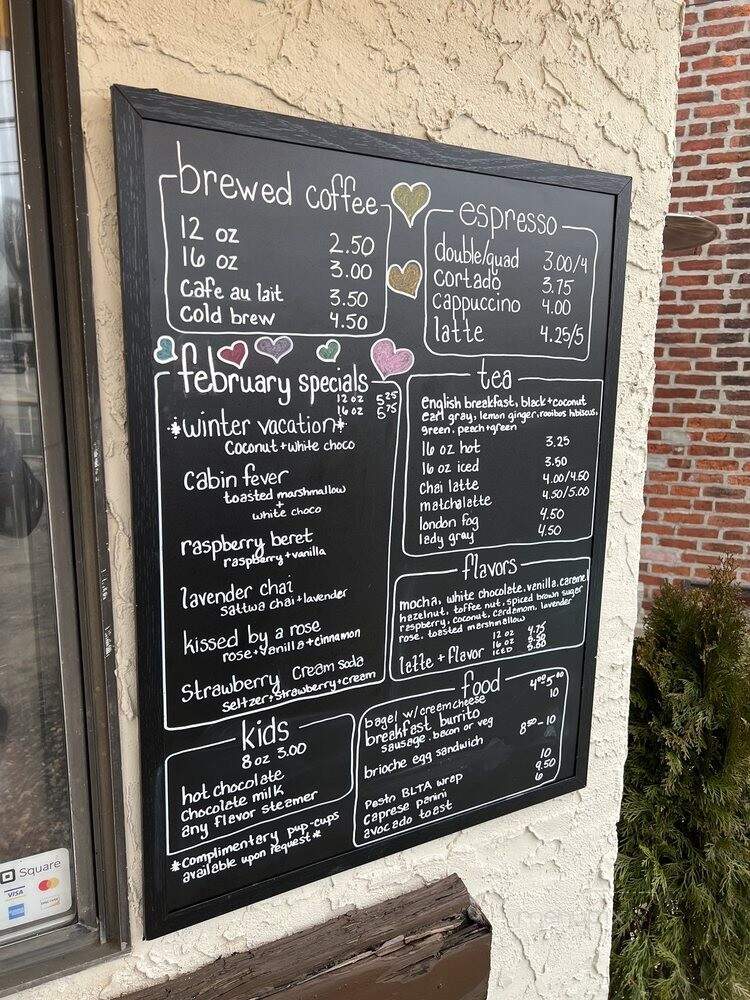 brewed coffee
12 oz 2.50
16 oz 3.00
cafe au lait 3.50
cold brew 4.50
espresso
double/quad 3.00/4
cortado 3.75
cappuccino 4.00
latte 4.25/5
february specials
12 oz 5.25
16 oz 5.75
*winter vacation*
coconut + white choco
cabin fever
toasted marshmallow
+
white choco
raspberry beret
raspberry + vanilla
lavender chai
sattwa chai + lavender
kissed by a rose
rose + vanilla + cinnamon
strawberry cream soda
seltzer + strawberry + cream
tea
english breakfast, black + coconut
earl gray, lemon ginger, rooibos hibiscus,
green, peach + green
16 oz hot 3.25
16 oz iced 3.50
chai latte 4.00/4.50
matchalatte 4.50/5.00
london fog 4.50
lady gray 4.50
flavors
mocha, white chocolate, vanilla, caramel
hazelnut, toffee nut, spiced brown sugar
raspberry, coconut, cardamom, lavender
rose, toasted marshmallow
latte + flavor
12 oz 4.75
16 oz
ICED
kids
8 oz 3.00
hot chocolate
chocolate milk
any flavor steamer
*complimentary pup-cups
available upon request*
food
bagel w/ creamcheese 4.00 5.00
breakfast burrito 10
sausage, bacon or veg
brioche egg sandwich 8.50 - 10
Pesto BLTA wrap 10
caprese panini 9.50
avocado toast 6
Square
VISA